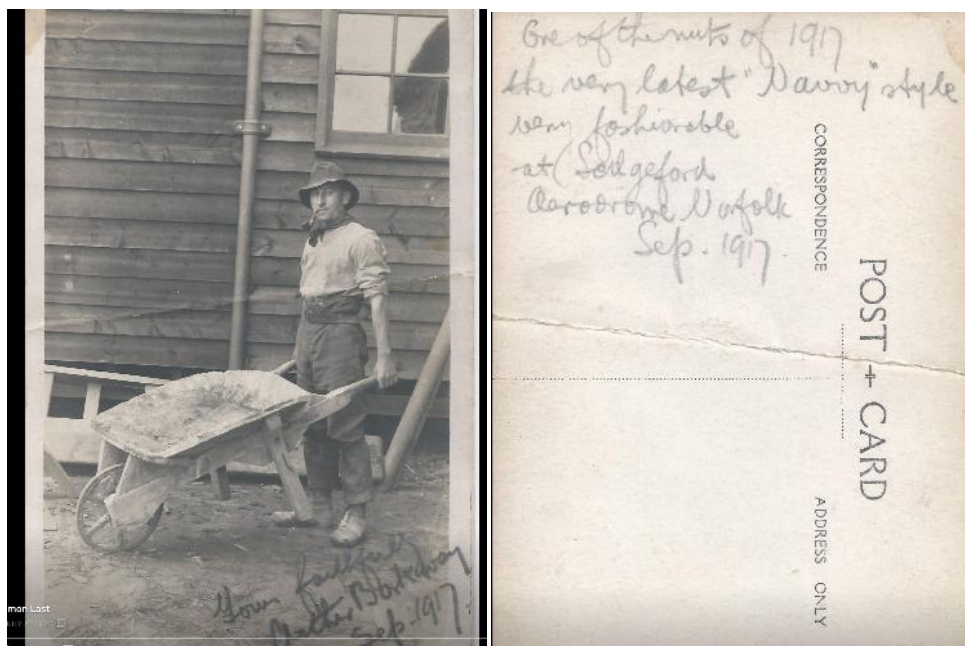 Yours faithfully
Arthur Barkaway
Sep. 1917.
mon Last
One of the nuts of 1917
the very latest "Navvy" style
very fashionable
at Sedgeford
Aerodrome Norfolk
Sep. 1917.
CORRESPONDENCE
POST CARD
ADDRESS ONLY